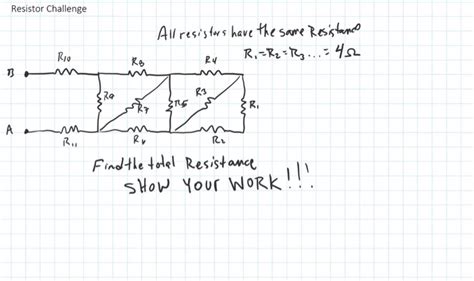 Resistor Challenge
All resistors have the same Resistance
R₁=R₂=R₃...=4Ω
B R₁₀ R₈ R₄
R₉ R₇ R₅ R₃ R₁
A R₁₁ R₆ R₂
Find the total Resistance
SHOW YOUR WORK!!!